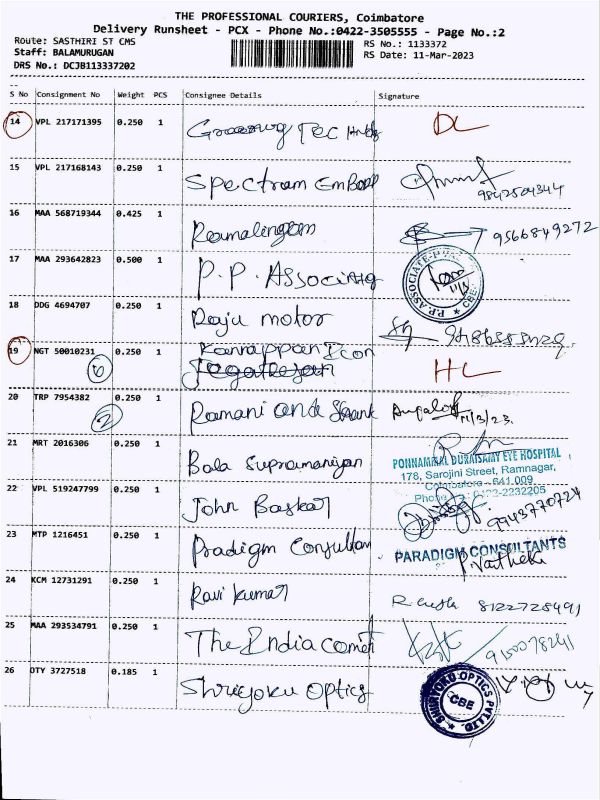 THE PROFESSIONAL COURIERS, Coimbatore
Delivery Runsheet - PCX - Phone No.:0422-3505555 - Page No.:2
Route: SASTHIRI ST CMS RS No.: 1133372
Staff: BALAMURUGAN RS Date: 11-Mar-2023
DRS No.: DCJB113337202
S No Consignment No Weight PCS Consignee Details Signature
14 VPL 217171395 0.250 1 Tec DL
15 VPL 217168143 0.250 1 Spectram Emboss 9842504344
16 MAA 568719344 0.425 1 Ramalingam 9566849272
17 MAA 293642823 0.500 1 P.P. Associats P.P. ASSOCIATE CBE
18 DDG 4694707 0.250 1 Raju motor
19 NGT 50010231 0.250 1 Kannappan Icon HL
6 Jagatheesan
20 TRP 7954382 0.250 1 Ramani and Shank 11/3/23
2
21 MRT 2016306 0.250 1 Bala Supramaniyan
PONNAMMAL DURAISAMY EYE HOSPITAL
178, Sarojini Street, Ramnagar,
Coimbatore - 641 009
Phone No.: 0422-2232205
22 VPL 519247799 0.250 1 John Baskar 9943770724
23 MTP 1216451 0.250 1 Pradigm Consultan PARADIGM CONSULTANTS
24 KCM 12731291 0.250 1 Ravi kumar 8122728491
25 MAA 293534791 0.250 1 The India Coment
26 OTY 3727518 0.185 1 Shreyoku Optics OPTICS PVT.LTD. CBE